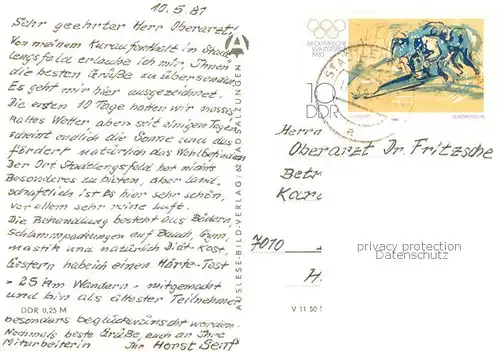 10.5.81
Sehr geehrter Herr Oberarzt,
Von meinem Kuraufenthalt in Stadt
Lengsfeld erlaube ich mir, Ihnen
die besten Grüße zu übersenden.
Es geht mir hier ausgezeichnet.
Die ersten 10 Tage hatten wir nasses,
kaltes Wetter aber seit einigen Tagen
scheint endlich die Sonne und das
fördert natürlich das Wohlbefinden
Der Ort Stadtlengsfeld hat nichts
Besonderes zu bieten, aber Land-
schaftlich ist Es hier sehr schön,
vor allem sehr reine Luft.
Die Behandlung besteht aus Bädern,
Schlammpackungen auf Bauch, Gym
mastik und natürlich Diät-Kost.
Gestern habe ich einen Härte-Test
- 25 km Wandern - mitgemacht
und bin als ältester Teilnehmer
besonders beglückwünscht worden.
Nochmals beste Grüße, auch an Ihre
Mitarbeiterin Ihr Horst Seiff
DDR 0,25 M
A
AUSLESE-BILD-VERLAG 62 BAD SALZUNGEN
XIII. OLYMPISCHE
WINTERSPIELE
1980
10
DDR
Herrn
Oberarzt Dr. Fritzsche
Betr
Kard
7010
privacy protection
Datenschutz
V 11 50